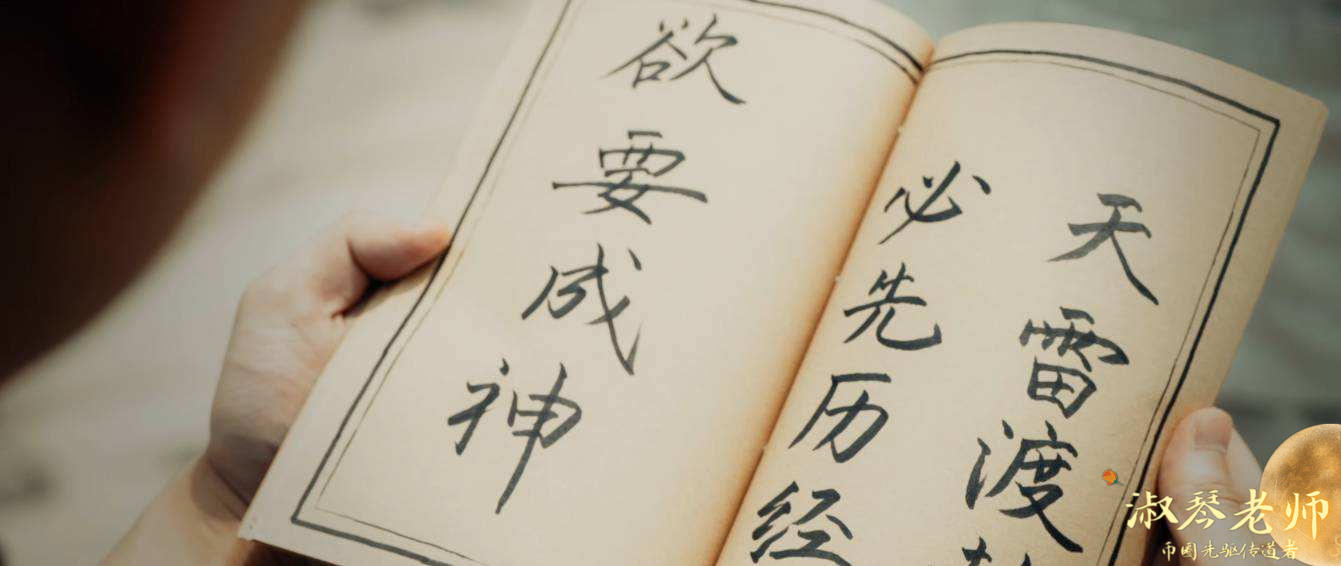 欲要成神
天雷渡
必先历经
淑琴老师
币圈先驱传道者